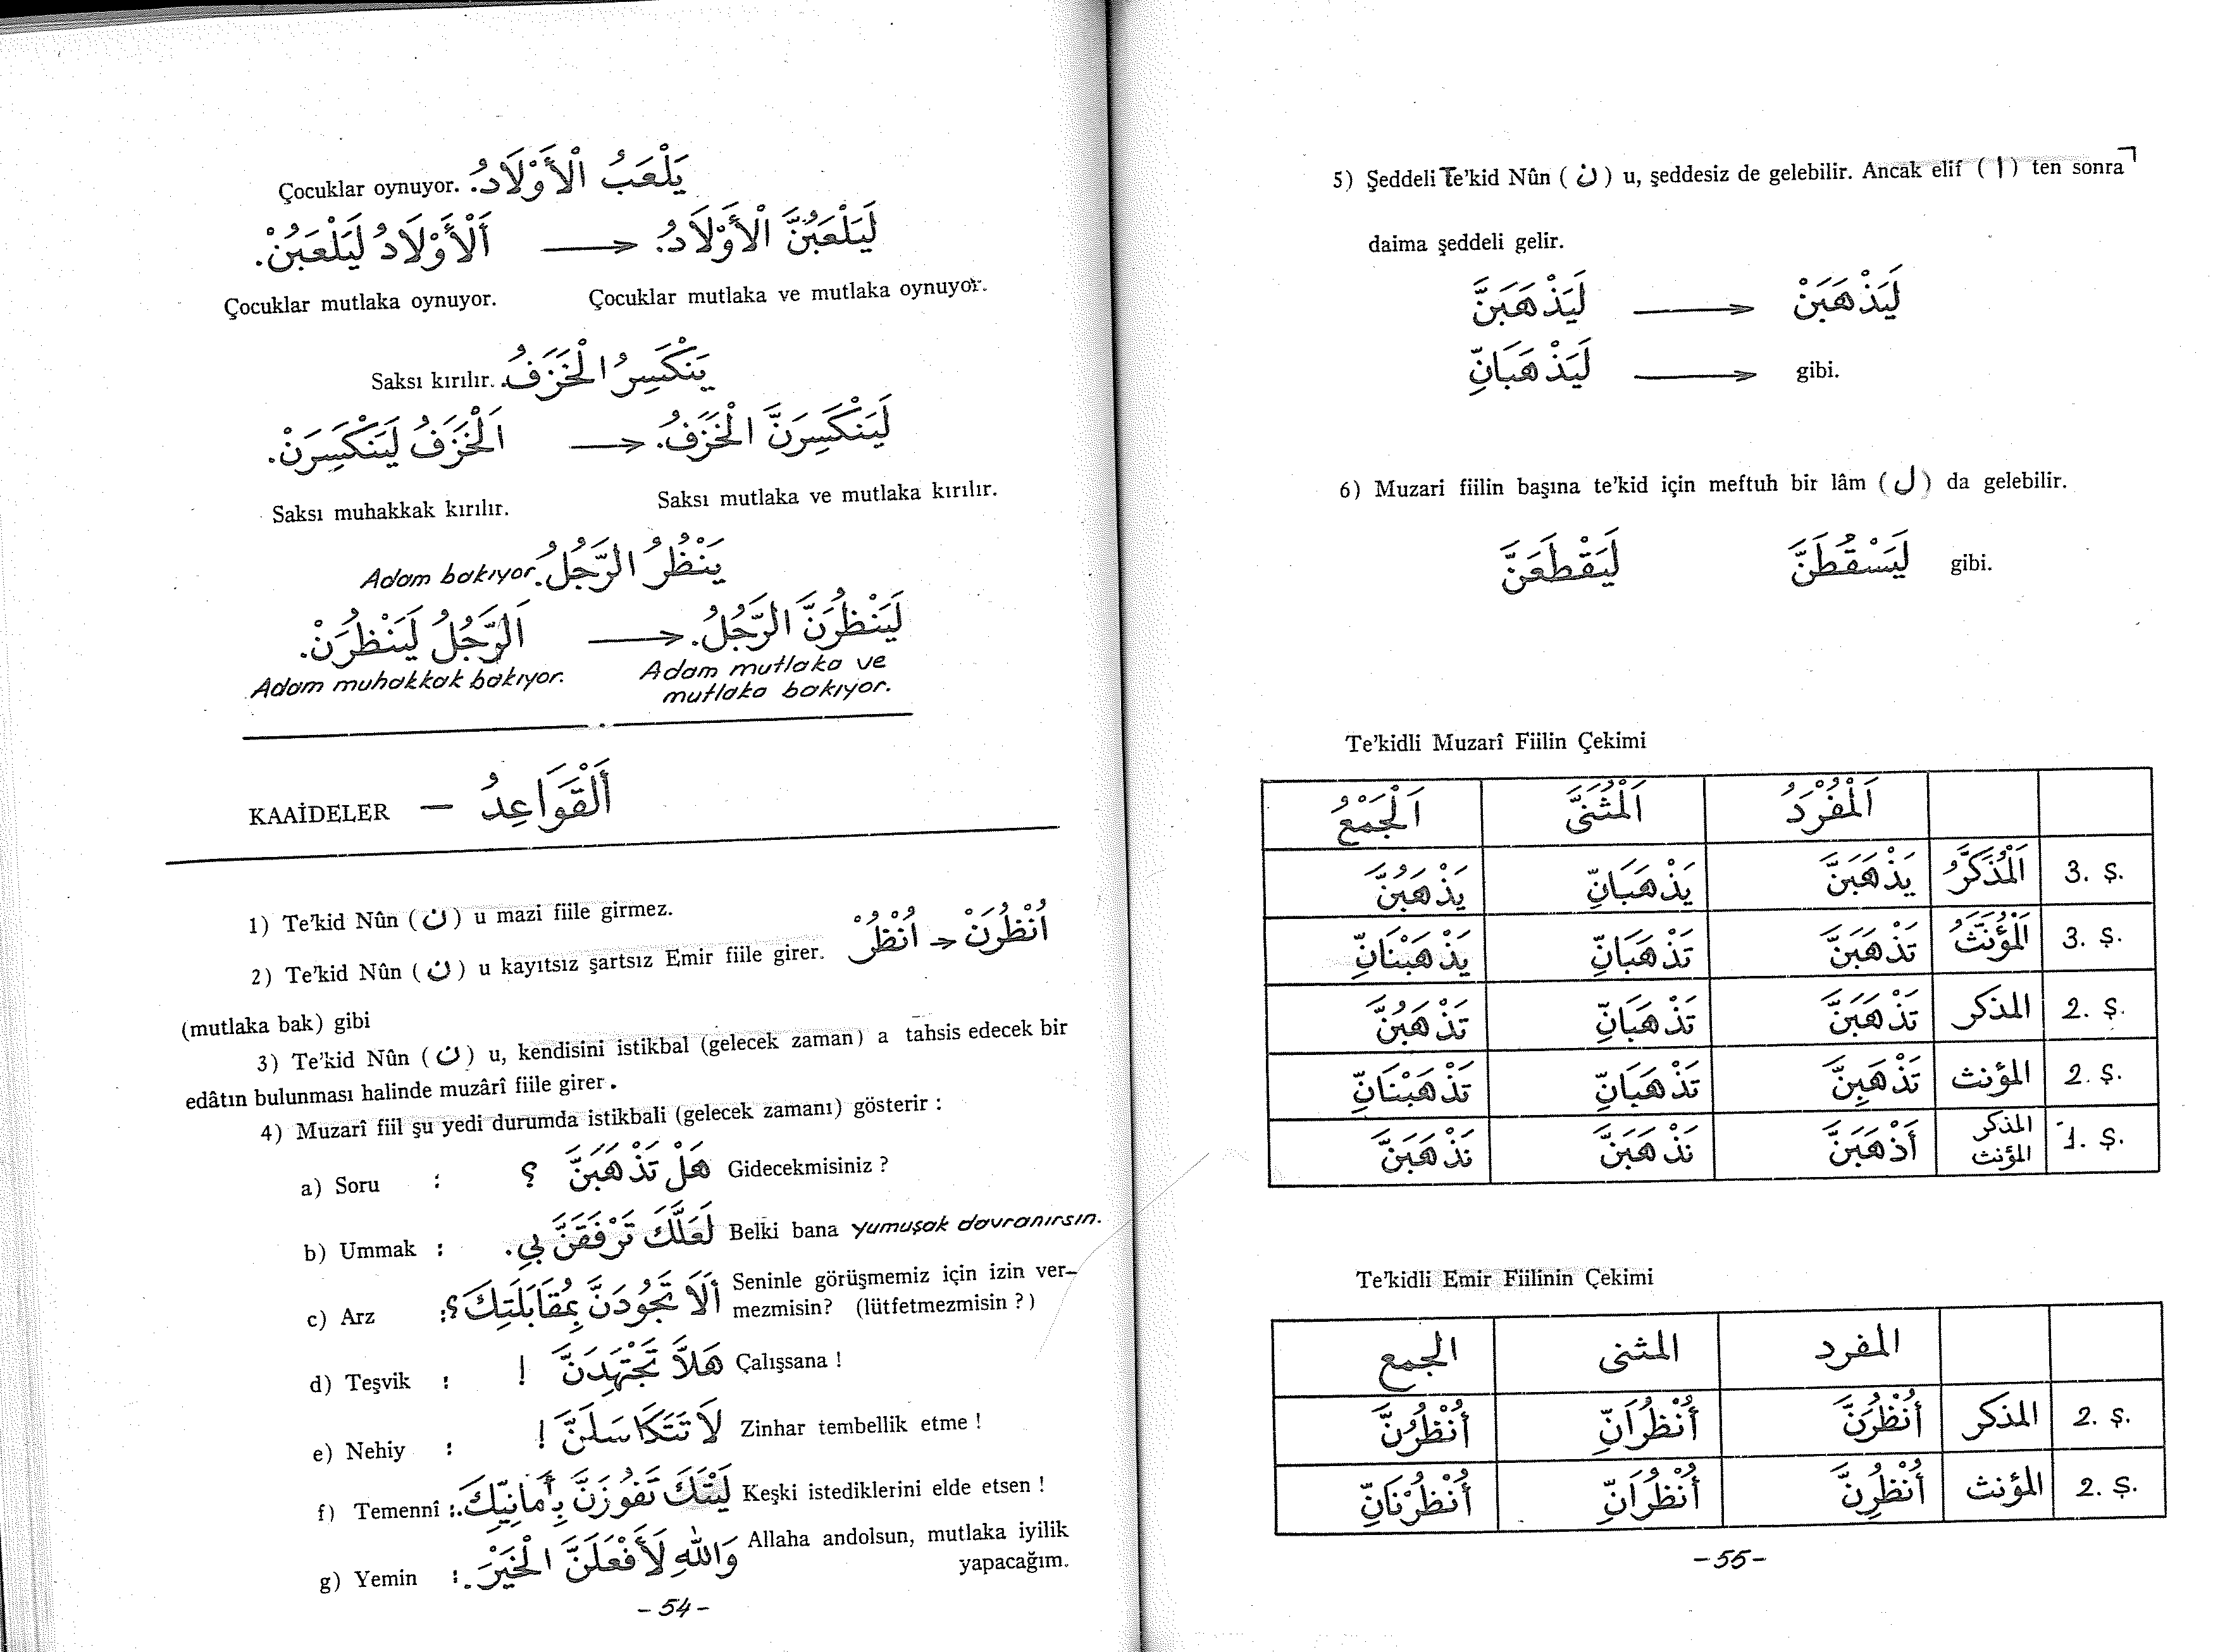 يَلْعَبُ الْأَوْلَادُ. Çocuklar oynuyor.
لَيَلْعَبُنَّ الْأَوْلَادُ. → اَلْأَوْلَادُ لَيَلْعَبُنْ.
Çocuklar mutlaka oynuyor. Çocuklar mutlaka ve mutlaka oynuyor.
يَنْكَسِرُ الْخَزَفُ. Saksı kırılır.
لَيَنْكَسِرَنَّ الْخَزَفُ. → اَلْخَزَفُ لَيَنْكَسِرَنْ.
Saksı muhakkak kırılır. Saksı mutlaka ve mutlaka kırılır.
يَنْظُرُ الرَّجُلُ. Adam bakıyor.
لَيَنْظُرَنَّ الرَّجُلُ. → اَلرَّجُلُ لَيَنْظُرَنْ.
Adam muhakkak bakıyor. Adam mutlaka ve
mutlaka bakıyor.
KAAİDELER — اَلْقَوَاعِدُ
1) Te'kid Nûn (ن) u mazi fiile girmez.
2) Te'kid Nûn (ن) u kayıtsız şartsız Emir fiile girer. اُنْظُرْ → اُنْظُرَنْ
(mutlaka bak) gibi
3) Te'kid Nûn (ن) u, kendisini istikbal (gelecek zaman) a tahsis edecek bir
edâtın bulunması halinde muzârî fiile girer.
4) Muzarî fiil şu yedi durumda istikbali (gelecek zamanı) gösterir :
a) Soru : هَلْ تَذْهَبَنَّ ؟ Gidecekmisiniz ?
b) Ummak : لَعَلَّكَ تَرْفَقَنَّ بِي. Belki bana yumuşak davranırsın.
c) Arz : أَلَا تَجُودَنَّ بِمُقَابَلَتِكَ؟ Seninle görüşmemiz için izin ver-
mezmisin? (lütfetmezmisin ?)
d) Teşvik : هَلَّا تَجْتَهِدَنَّ ! Çalışsana !
e) Nehiy : لَا تَتَكَاسَلَنَّ ! Zinhar tembellik etme !
f) Temennî : لَيْتَكَ تَفُوزَنَّ بِأَمَانِيِّكَ. Keşki istediklerini elde etsen !
g) Yemin : وَاللهِ لَأَفْعَلَنَّ الْخَيْرَ. Allaha andolsun, mutlaka iyilik
yapacağım.
-54-
5) Şeddeli Te'kid Nûn (ن) u, şeddesiz de gelebilir. Ancak elif (ا) ten sonra
daima şeddeli gelir.
لَيَذْهَبَنَّ → لَيَذْهَبَنْ
لَيَذْهَبَانِّ → gibi.
6) Muzari fiilin başına te'kid için meftuh bir lâm (ل) da gelebilir.
لَيَقْطَعَنَّ لَيَسْقُطَنَّ gibi.
Te'kidli Muzarî Fiilin Çekimi
اَلْمُفْرَدُ اَلْمُثَنَّى اَلْجَمْعُ
3. Ş. اَلْمُذَكَّرُ يَذْهَبَنَّ يَذْهَبَانِّ يَذْهَبُنَّ
3. Ş. اَلْمُؤَنَّثُ تَذْهَبَنَّ تَذْهَبَانِّ يَذْهَبْنَانِّ
2. Ş. المذكر تَذْهَبَنَّ تَذْهَبَانِّ تَذْهَبُنَّ
2. Ş. المؤنث تَذْهَبِنَّ تَذْهَبَانِّ تَذْهَبْنَانِّ
1. Ş. المذكر المؤنث أَذْهَبَنَّ نَذْهَبَنَّ نَذْهَبَنَّ
Te'kidli Emir Fiilinin Çekimi
المفرد المثنى الجمع
2. Ş. المذكر أُنْظُرَنَّ أُنْظُرَانِّ أُنْظُرُنَّ
2. Ş. المؤنث أُنْظُرِنَّ أُنْظُرَانِّ أُنْظُرْنَانِّ
-55-